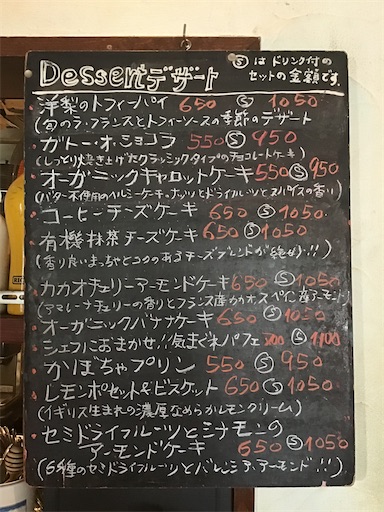 Dessert デザート
Ⓢは ドリンク付の
セットの金額です。
洋梨のトフィーパイ 650 Ⓢ 1050
(旬のラ・フランスとトフィーソースの季節のデザート
ガトー・オ・ショコラ 550 Ⓢ 950
(しっとり焼き上げたクラッシックタイプのチョコレートケーキ)
オーガニックキャロットケーキ 550 Ⓢ 950
(バター不使用のヘルシーケーキ、ナッツとドライフルーツとスパイスの香り)
コーヒーチーズケーキ 650 Ⓢ 1050
有機抹茶チーズケーキ 650 Ⓢ 1050
(香り良いまっちゃとコクのあるチーズブレンドが絶妙!!)
カカオチェリーアーモンドケーキ 650 Ⓢ 1050
(アマレーナチェリーの香りとフランス産カカオ、スペイン産アーモンド)
オーガニックバナナケーキ 650 Ⓢ 1050
シェフにおまかせ!! 気まぐれパフェ Ⓢ 1100
かぼちゃプリン 550 Ⓢ 950
レモンポセット&ビスケット 650 Ⓢ 1050
(イギリス生まれの濃厚なめらかレモンクリーム)
セミドライフルーツとシナモンの
アーモンドケーキ 650 Ⓢ 1050
(6種のセミドライフルーツとバレンシア・アーモンド!!)